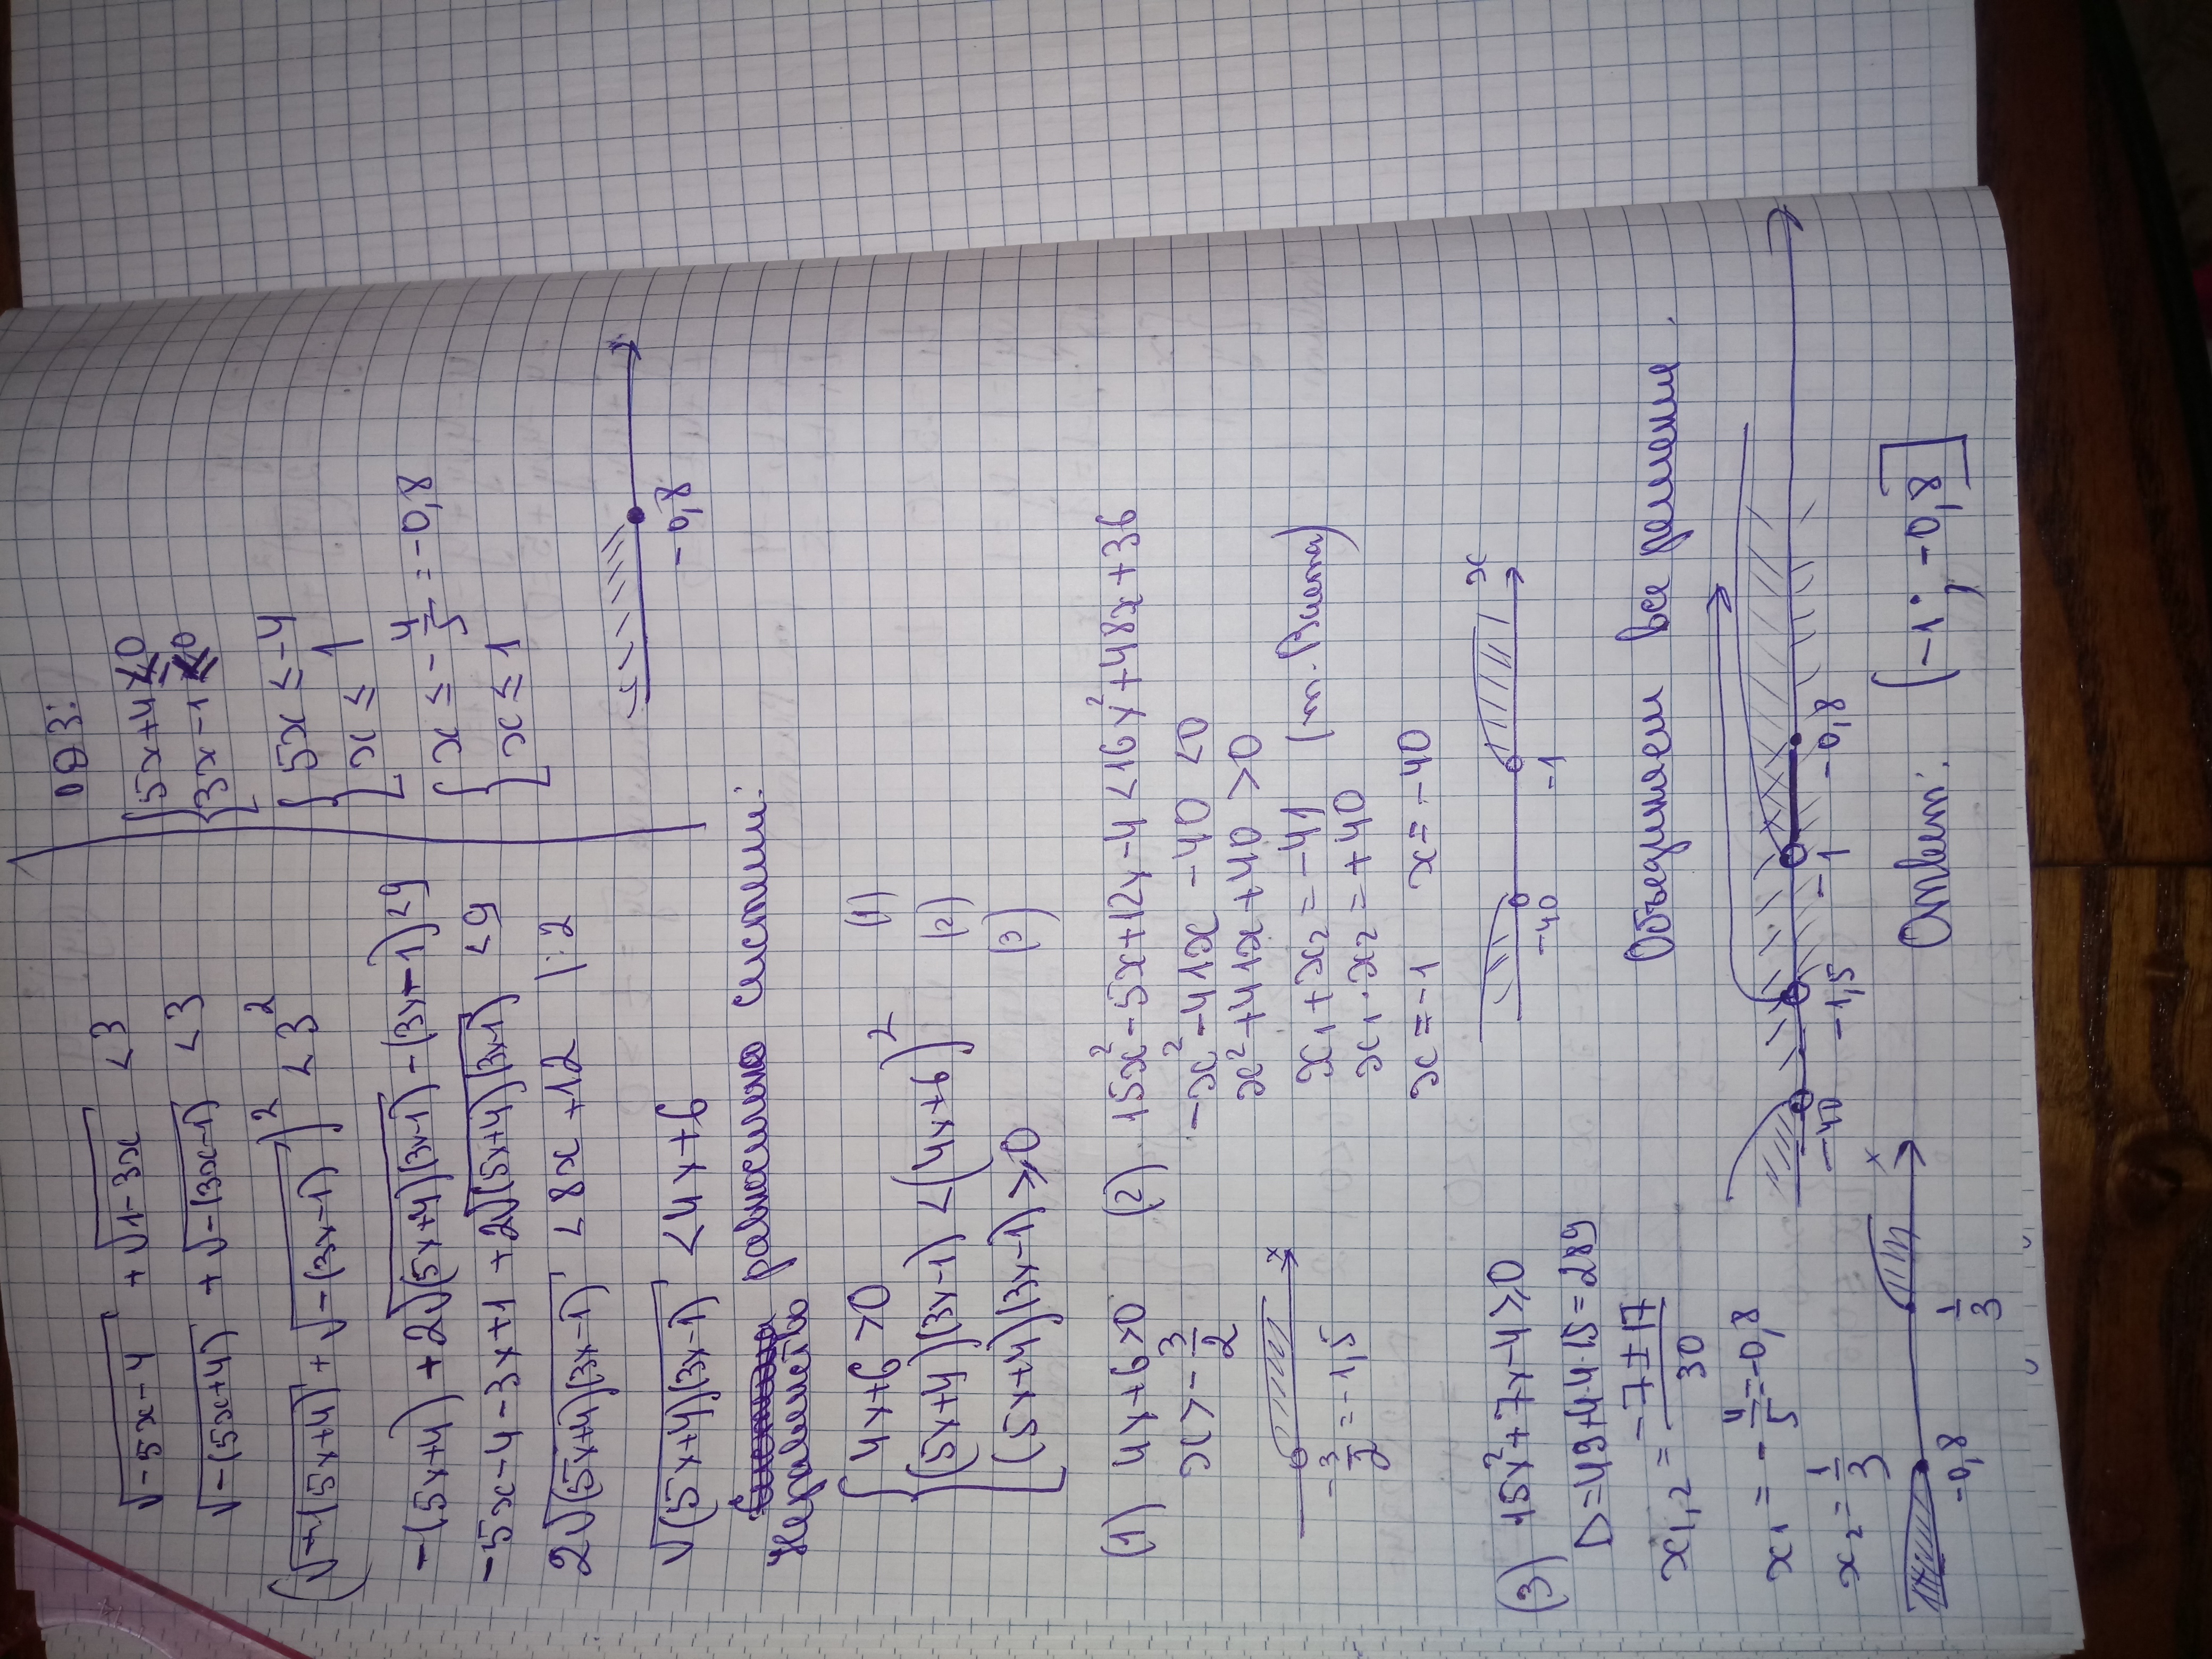 √-5x-4 + √1-3x < 3
√-(5x+4) + √-(3x-1) < 3
(√-(5x+4) + √-(3x-1))² < 3²
-(5x+4) + 2√(5x+4)(3x-1) - (3x-1) < 9
-5x-4-3x+1 + 2√(5x+4)(3x-1) < 9
2√(5x+4)(3x-1) < 8x+12 |:2
√(5x+4)(3x-1) < 4x+6
ОДЗ:
{5x+4≤0
{3x-1≤0
{5x ≤ -4
{x ≤ 1
{x ≤ -4/5 = -0,8
{x ≤ 1
-0,8
Неравенство равносильно системе:
{4x+6>0 (1)
{(5x+4)(3x-1) < (4x+6)² (2)
{(5x+4)(3x-1)≥0 (3)
(1) 4x+6>0
x > -3/2
-3/2 = -1,5
x
(2) 15x²-5x+12x-4<16x²+48x+36
-x²-41x-40<0
x²+41x+40>0
x₁+x₂=-41 (т. Виета)
x₁·x₂=+40
x=-1 x=-40
-40 -1 x
(3) 15x²+7x-4≥0
D=49+4·4·15=289
x₁,₂ = -7±17/30
x₁ = -4/5 = -0,8
x₂ = 1/3
-0,8 1/3 x
Объединяем все решения.
-40 -1,5 -1 -0,8
Ответ: (-1; -0,8]